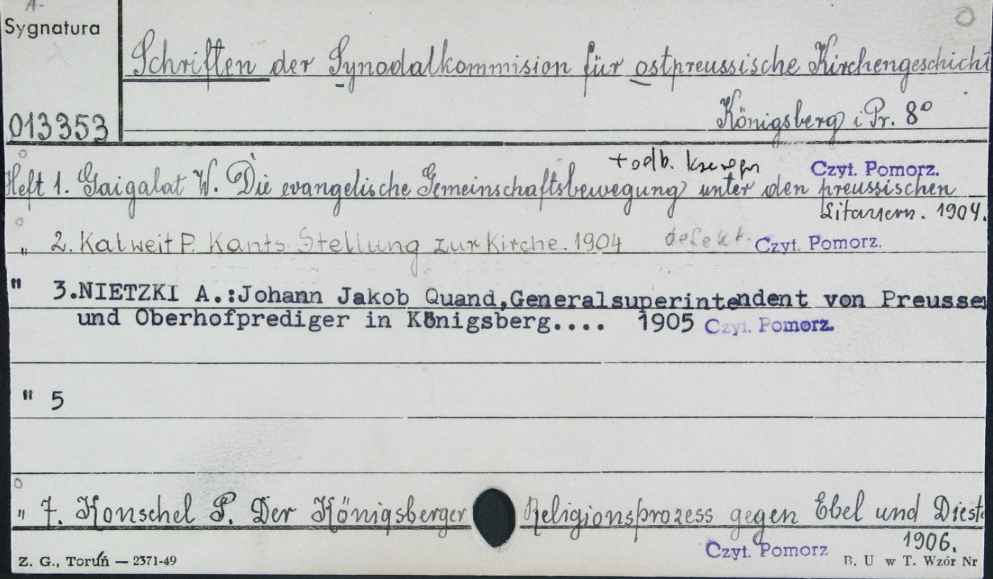 Sygnatura
013353
Schriften der Synodalkommision für ostpreussische Kirchengeschicht
Königsberg i Pr. 8°
+ odb. kserogr
Czyt. Pomorz.
Heft 1. Gaigalat W. Die evangelische Gemeinschaftsbewegung unter den preussischen
Litauern. 1904.
„ 2. Kalweit P. Kants Stellung zur Kirche. 1904 defekt. Czyt. Pomorz.
" 3.NIETZKI A.:Johann Jakob Quand,Generalsuperintendent von Preussen
und Oberhofprediger in Königsberg.... 1905 Czyt. Pomorz.
" 5
„ 7. Konschel P. Der Königsberger Religionsprozess gegen Ebel und Dieste
1906.
Czyt. Pomorz
Z. G., Toruń — 2371-49
B. U w T. Wzór Nr